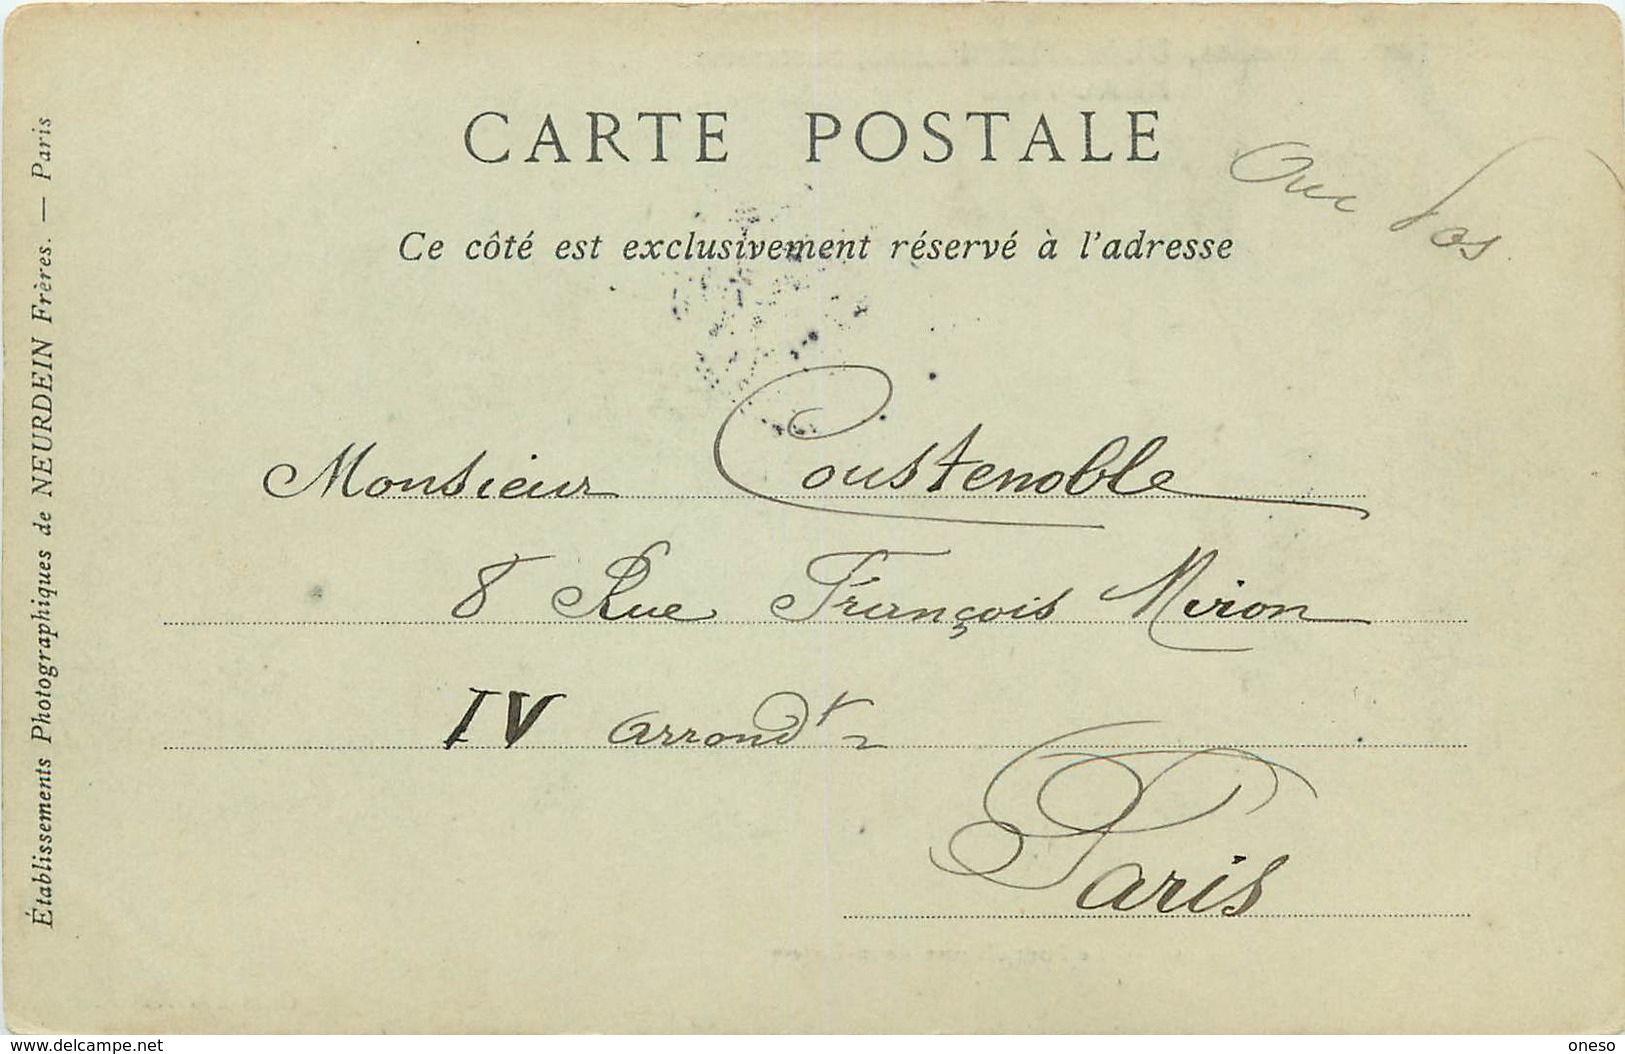 CARTE POSTALE
Ce côté est exclusivement réservé à l'adresse
Monsieur Coustenoble
8 Rue François Miron
IV arrondt
Paris
Établissements Photographiques de NEURDEIN Frères. — Paris
www.delcampe.net
oneso